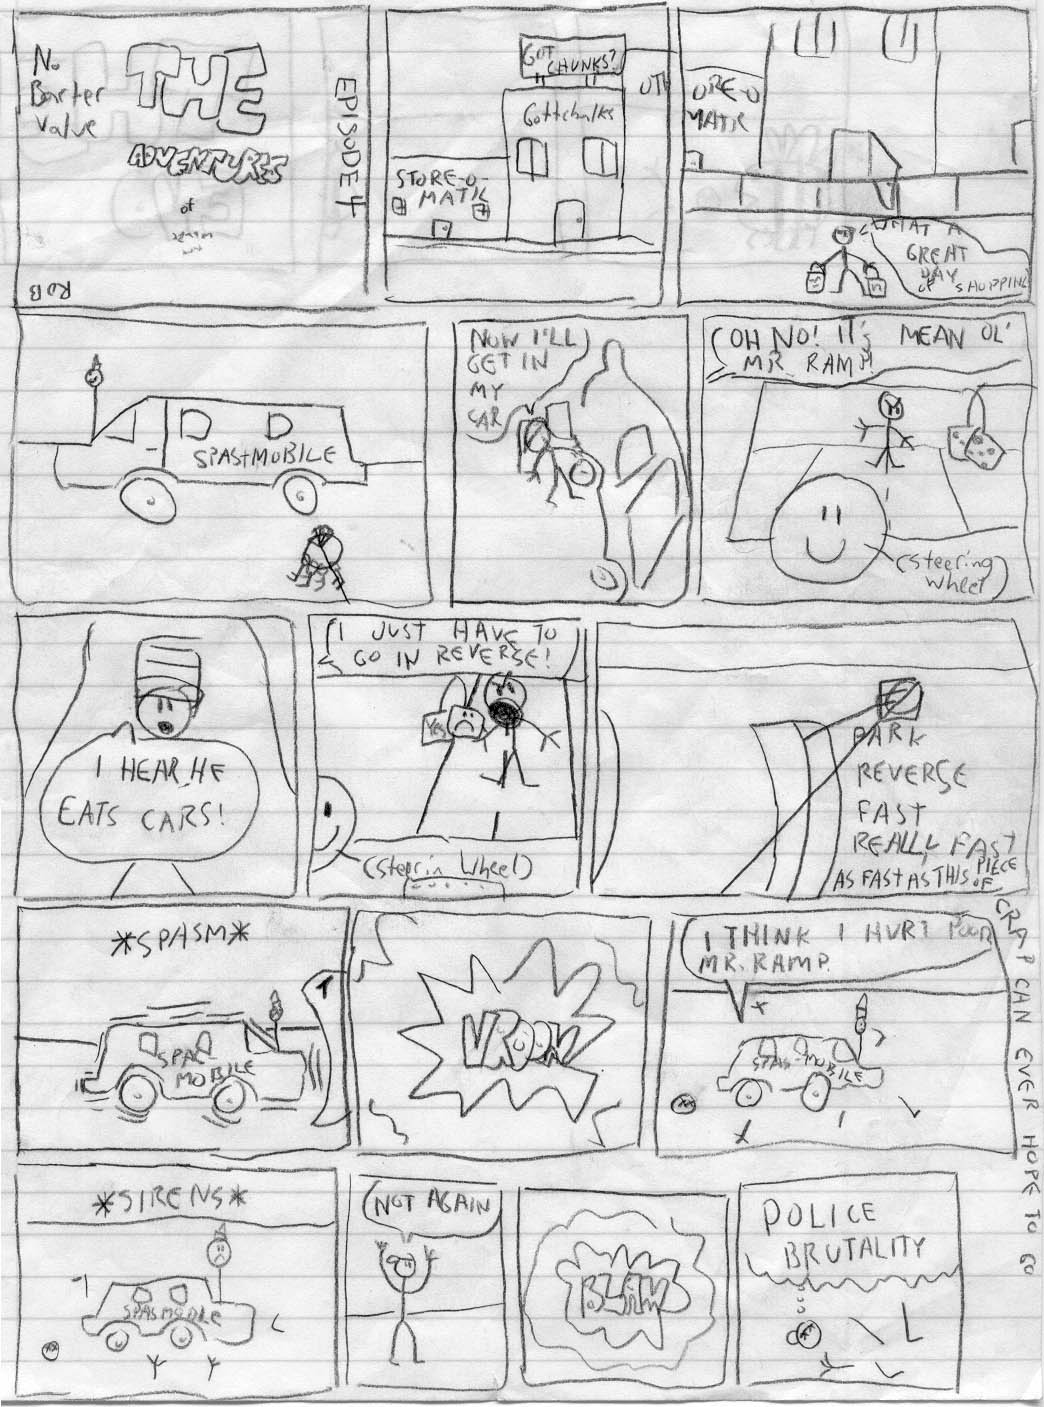 No
Barter
Value
THE
ADVENTURES
of
EPISODE 4
ROB
GOT
CHUNKS?
Gottchalks
STORE-O-
MATIC
OTH
ORE-O
MATIC
WHAT A
GREAT
DAY
OF SHOPPING
SPASTMOBILE
NOW I'LL
GET IN
MY
CAR
OH NO! IT'S MEAN OL'
MR. RAMP!
(steering
wheel)
I HEAR HE
EATS CARS!
I JUST HAVE TO
GO IN REVERSE!
Yes
(Steerin Wheel)
PARK
REVERSE
FAST
REALLY FAST
AS FAST AS THIS PIECE
OF
CRAP CAN EVER HOPE TO GO
*SPASM*
SPAS-
MOBILE
VROOM
I THINK I HURT POOR
MR. RAMP.
SPAS-MOBILE
*SIRENS*
SPASMOBILE
NOT AGAIN
BLAM
POLICE
BRUTALITY